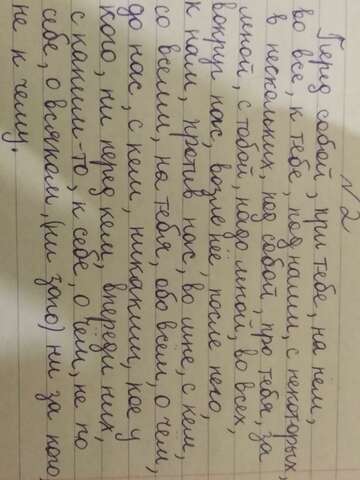 N2
Перед собой, при тебе, на нём,
во все, к тебе, под нами, с некоторых,
в нескольких, под собой, про тебя, за
мной, с тобой, надо мной, во всех,
вокруг нас, возле неё, после него,
к нам, против нас, во мне, с кем,
со всеми, на тебя, обо всём, о чём,
до нас, с кем, никакими, кое у
кого, ни перед кем, впереди них,
с каким-то, к себе, о чём, не по
себе, о всяком, (ни заго) ни за кого,
не к чему.